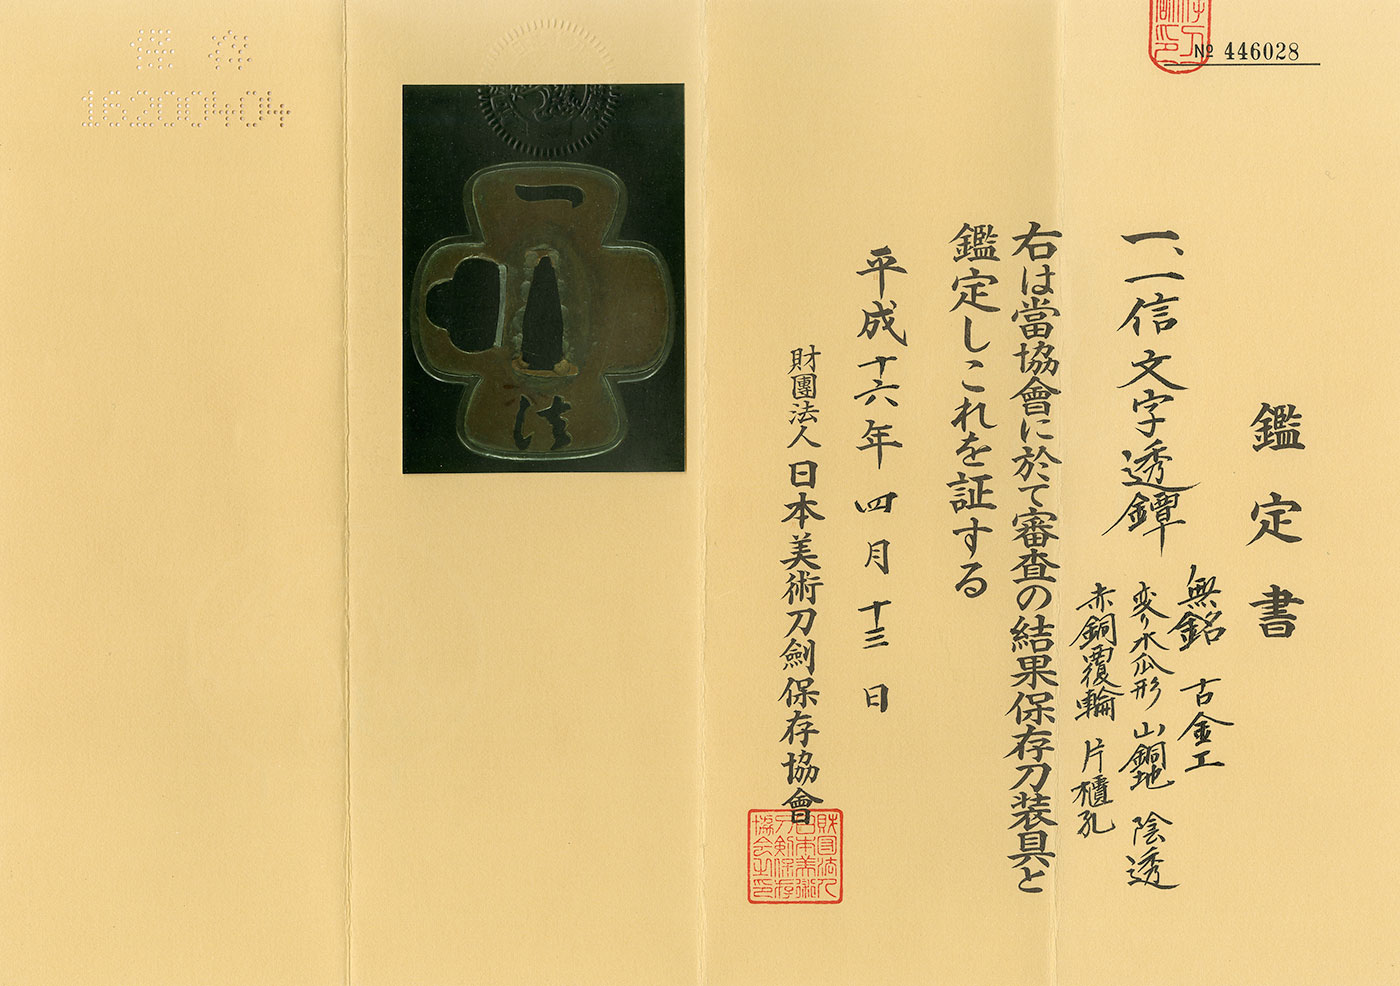 № 446028
鑑定書
一、一信文字透鐔
無銘 古金工
変り木瓜形 山銅地 陰透
赤銅覆輪 片櫃孔
右は當協會に於て審査の結果保存刀装具と
鑑定しこれを証する
平成十六年四月十三日
財團法人日本美術刀劍保存協會
財団法人
日本美術
刀剣保存
協会之印
保存
16200404
一